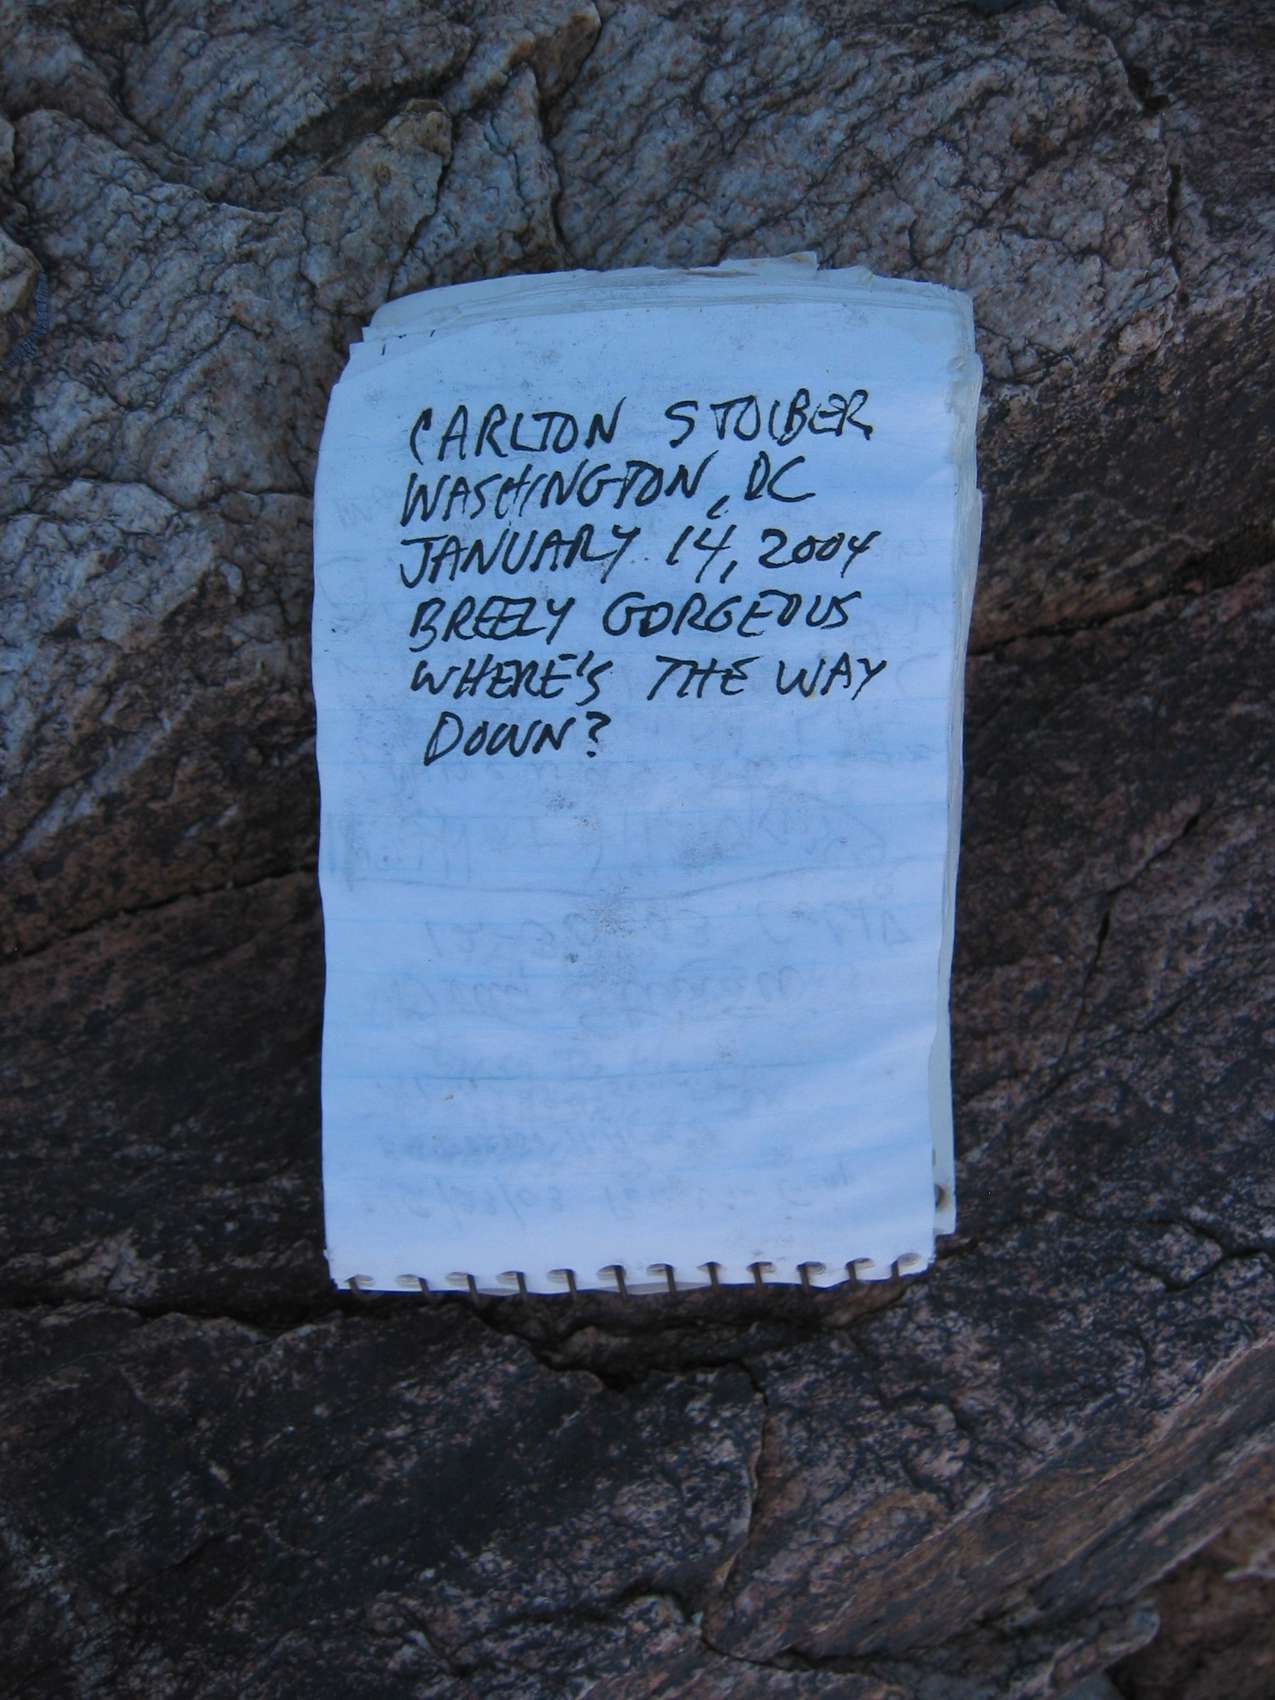 CARLTON STOIBER
WASHINGTON, DC
JANUARY 14, 2004
BREEZY GORGEOUS
WHERE'S THE WAY
DOWN?